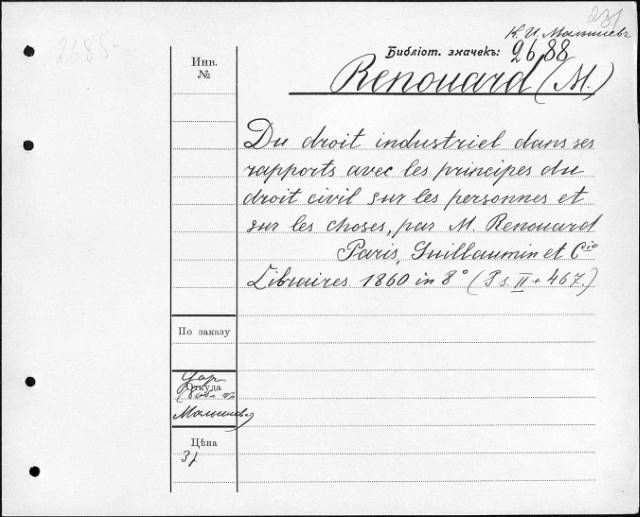 231
К. И. Малышевъ
2688
Библіот. значекъ: 2688
Инв. №
Renouard (M.)
Du droit industriel dans ses
rapports avec les principes du
droit civil sur les personnes et
sur les choses, par M. Renouard
Paris, Guillaumin et Cie
Libraires. 1860 in 8° (Ps. II + 467.)
По заказу
Откуда
Малышева
Цѣна
3 р